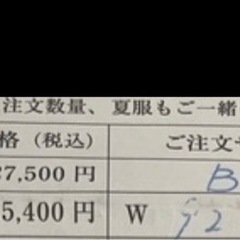 注文数量、夏服もご一緒
格（税込） ご注文サ
7,500 円 B
5,400 円 W 92